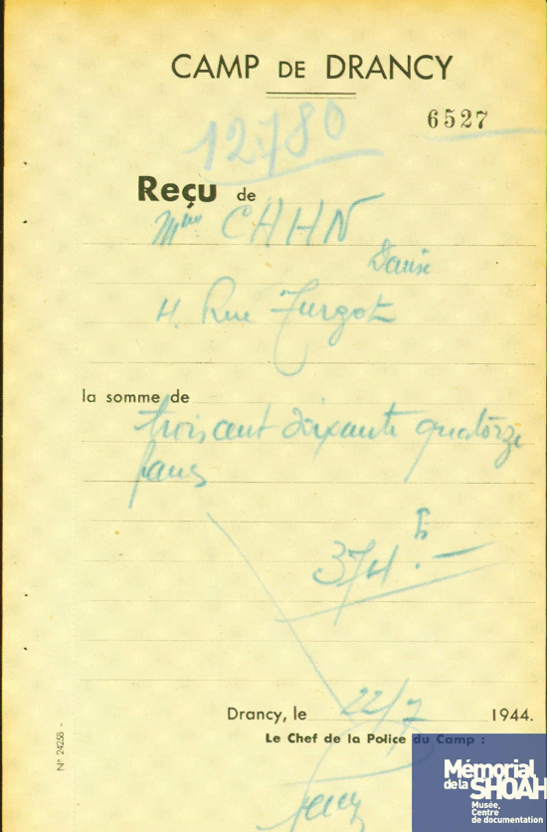 CAMP DE DRANCY
6527
12780
Reçu de
Mme CAHN
Danise
4. Rue Turgot
la somme de
trois cent soixante quatorze
francs
F
374.-
Drancy, le 22/7 1944.
Le Chef de la Police du Camp :
N° 24258 -
Mémorial
de la SHOAH
Musée,
Centre
de documentation